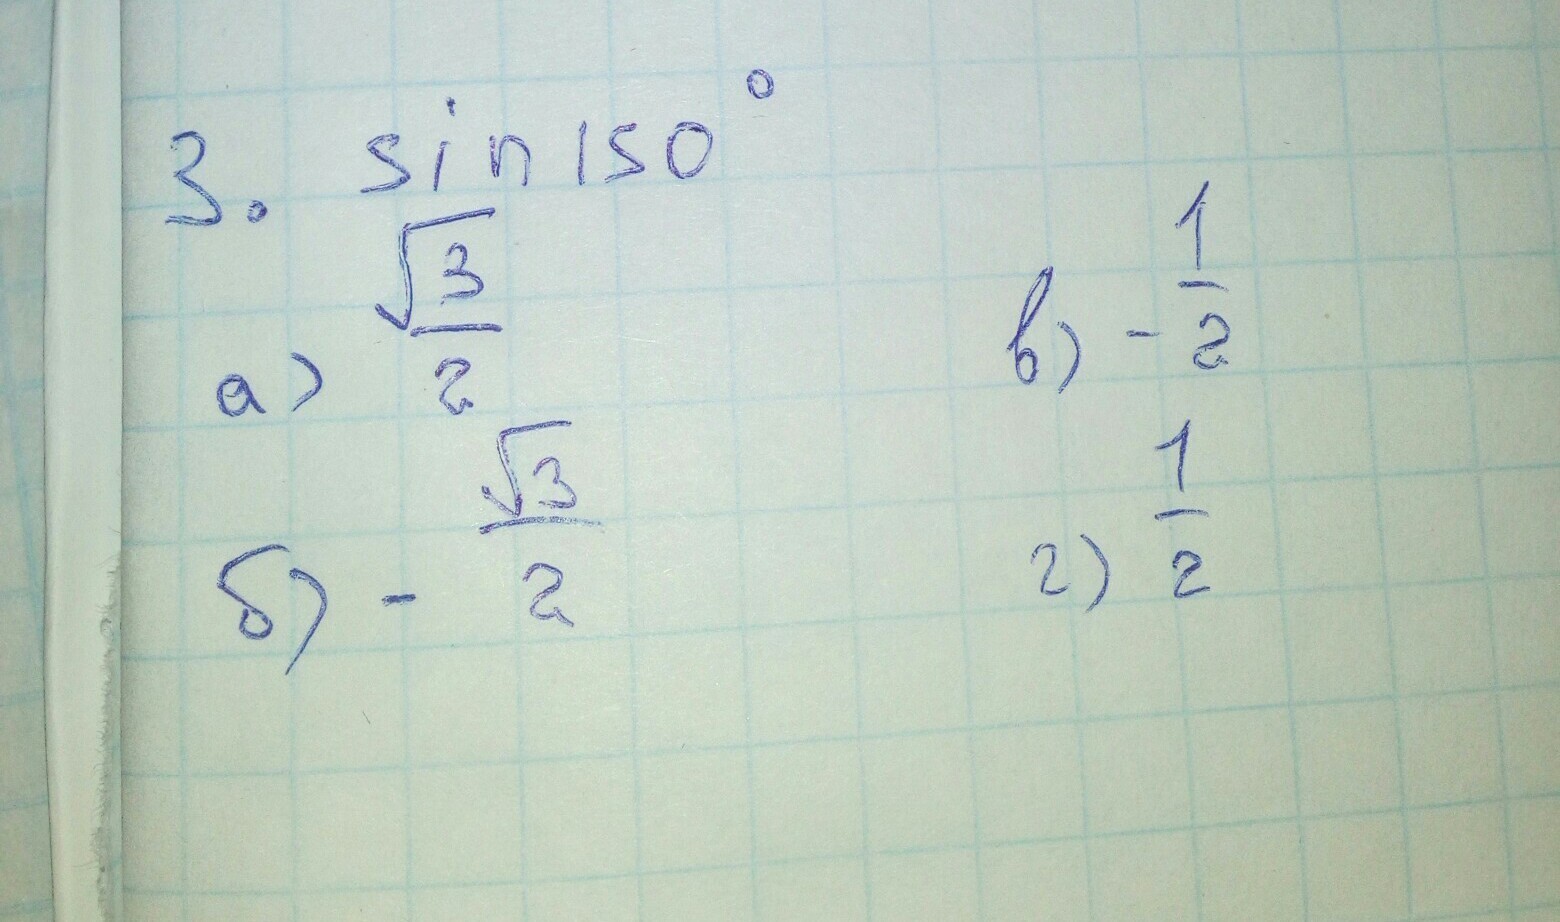 3. sin 150°
а) √3/2
б) - √3/2
в) - 1/2
г) 1/2